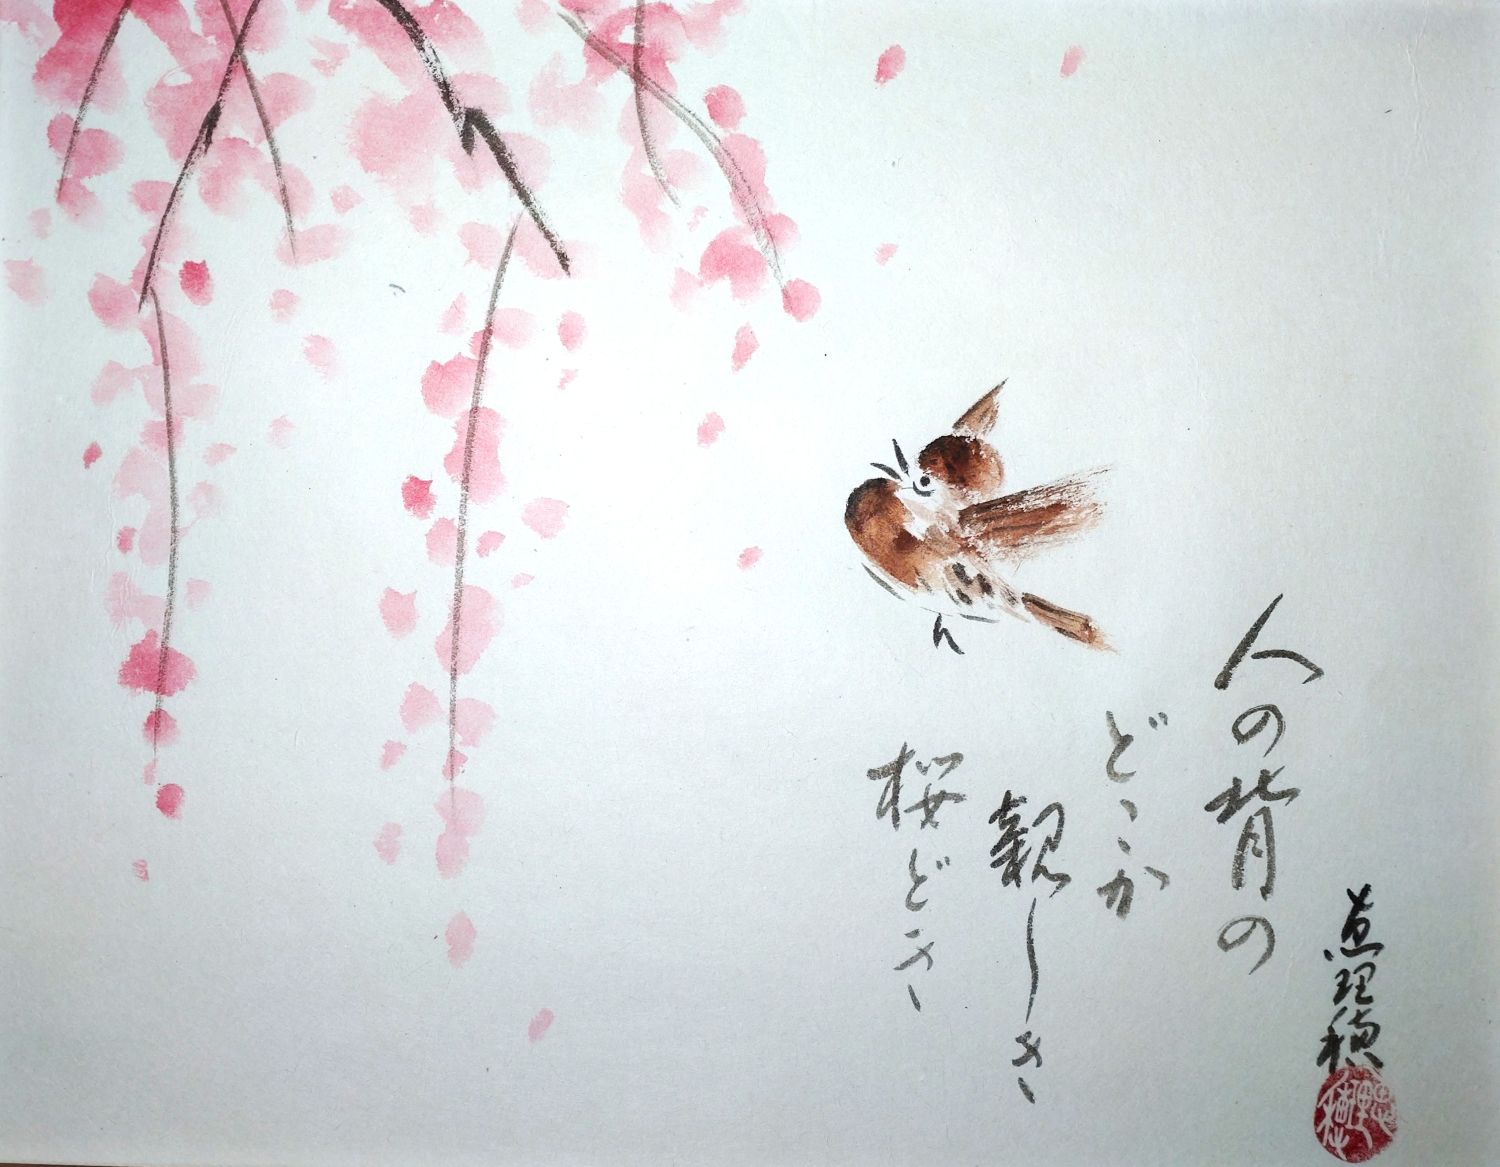 人の背の
どこか
親しき
桜どき
恵理穂